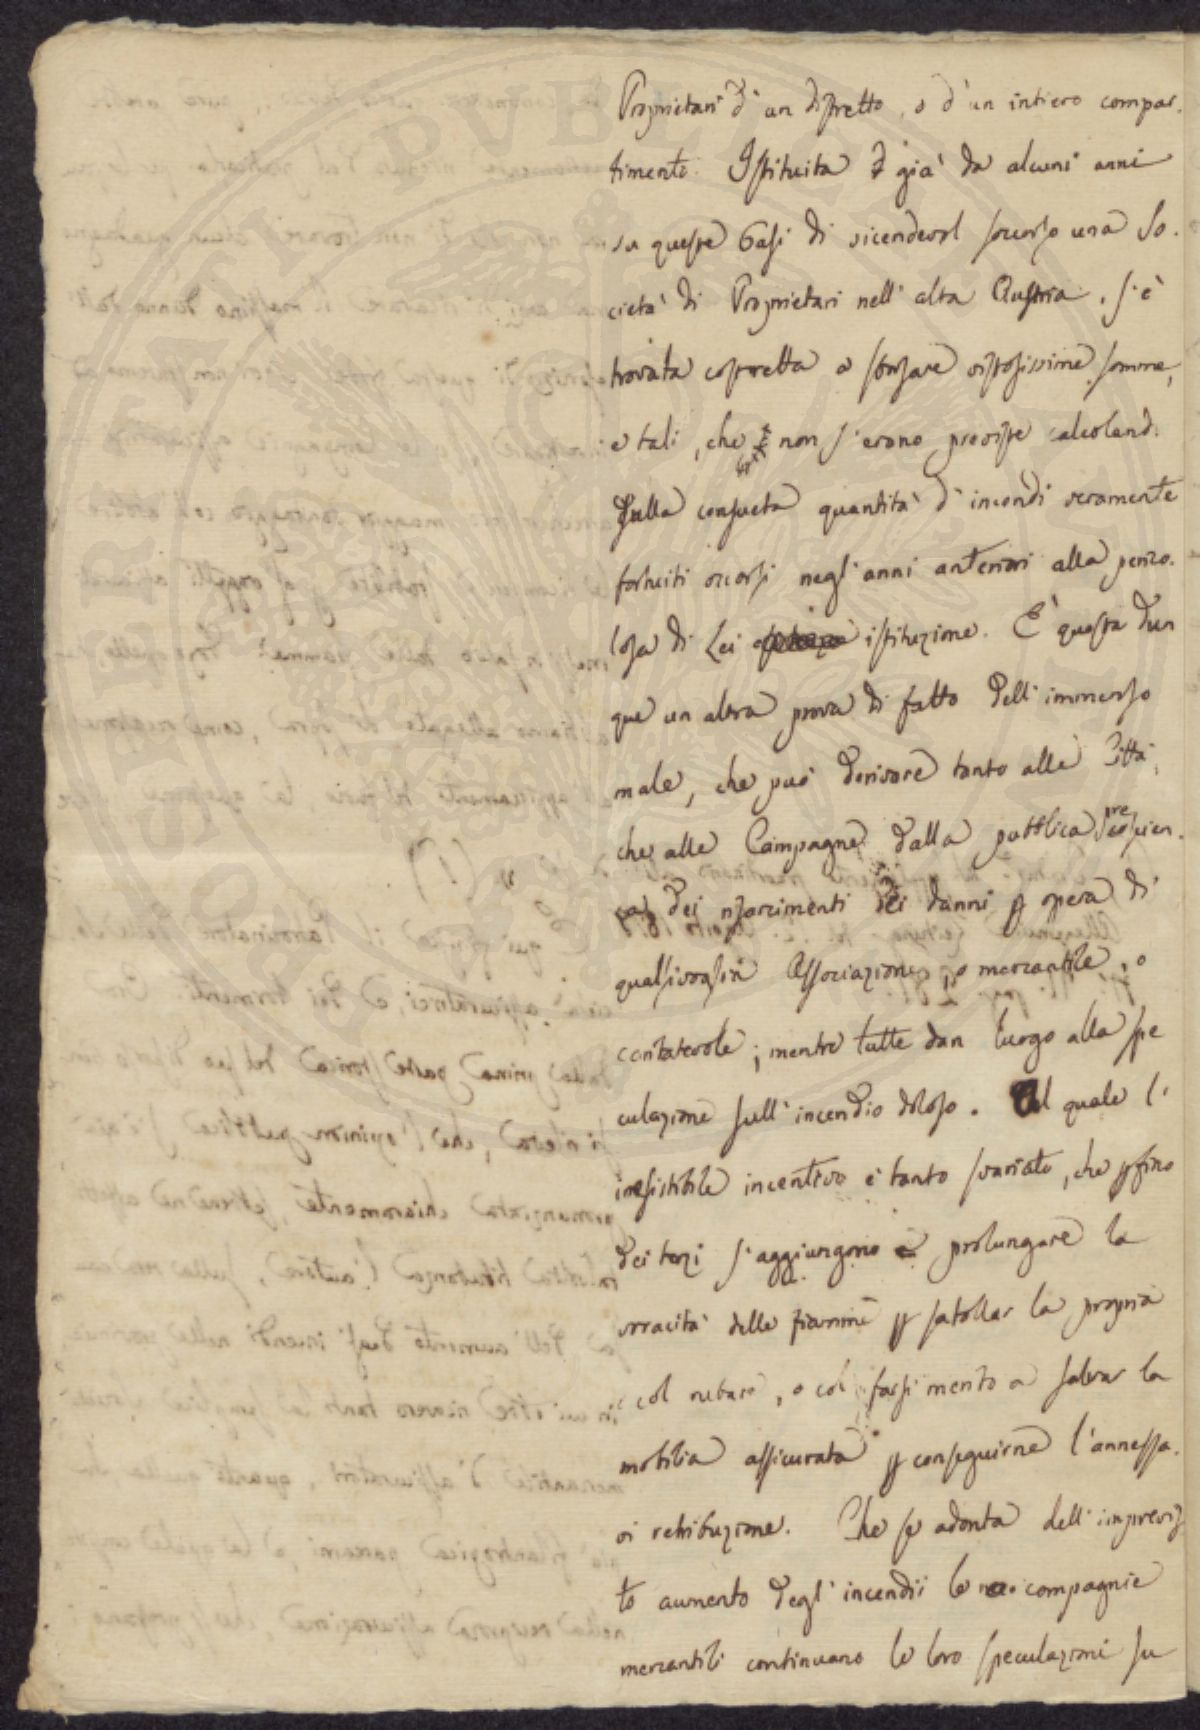 Proprietari d'un distretto, o d'un intiero compar-
timento. Istituita è già da alcuni anni
su queste basi di vicendevol soccorso una So-
cietà di Proprietari nell'alta Austria, s'è
trovata costretta a sborsare vistosissime somme,
e tali, che non s'erano previste calcoland.
sulla consueta quantità d'incendi veramente
fortuiti occorsi negl'anni anteriori alla perico-
losa di Lei istituzione. È questa dun
que un altra prova di fatto dell'immenso
male, che può derivare tanto alle Città,
che alle Campagne dalla pubblica prescien-
za dei risarcimenti dei danni p opera di
qualsivoglia Associazione, o mercantile, o
caritatevole; mentre tutte dan luogo alla spe
culazione sull'incendio doloso. Al quale l'
irresistibile incentivo è tanto svariato, che p fino
dei terzi s'aggiungono a prolungare la
voracità delle fiamme p satollar la propria
col rubare, o col farsi merito a salvar la
mobilia assicurata p conseguirne l'annessa-
vi retribuzione. Che se adonta dell'imprevis
to aumento degl'incendii le compagnie
mercantili continuano le loro speculazioni su